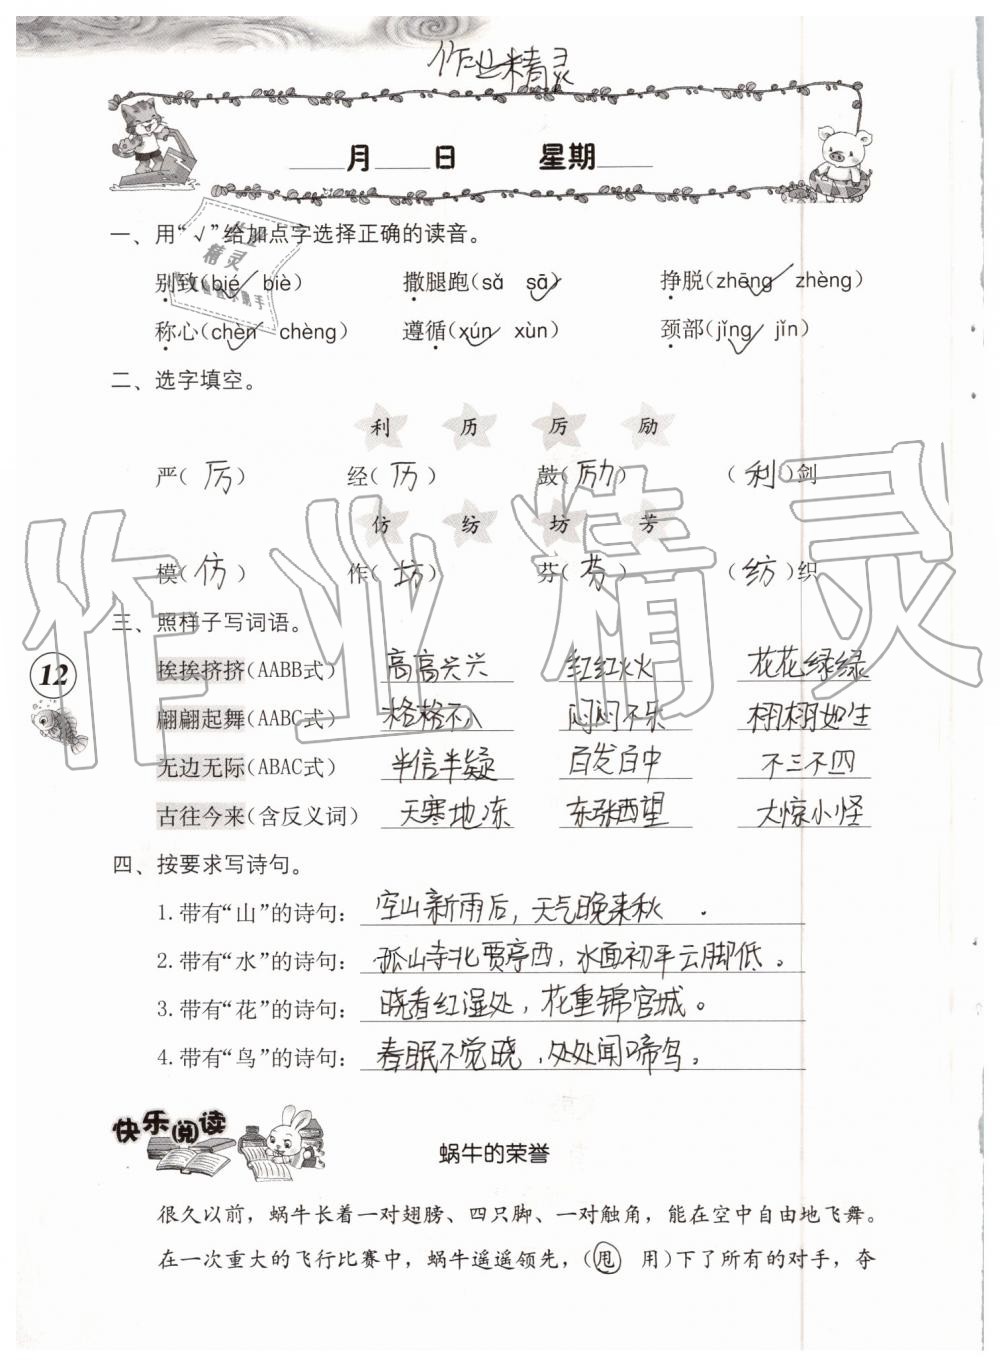 作业精灵
月 日 星期
一、用“√”给加点字选择正确的读音。
别致(bié biè) 撒腿跑(sǎ sā) 挣脱(zhēng zhèng)
称心(chèn chèng) 遵循(xún xùn) 颈部(jǐng jǐn)
二、选字填空。
利 历 厉 励
严(厉) 经(历) 鼓(励) (利)剑
仿 纺 坊 芳
模(仿) 作(坊) 芬(芳) (纺)织
三、照样子写词语。
挨挨挤挤(AABB式) 高高兴兴 红红火火 花花绿绿
翩翩起舞(AABC式) 格格不入 闷闷不乐 栩栩如生
无边无际(ABAC式) 半信半疑 百发百中 不三不四
古往今来(含反义词) 天寒地冻 东张西望 大惊小怪
四、按要求写诗句。
1.带有“山”的诗句：空山新雨后，天气晚来秋.
2.带有“水”的诗句：孤山寺北贾亭西，水面初平云脚低。
3.带有“花”的诗句：晓看红湿处，花重锦官城。
4.带有“鸟”的诗句：春眠不觉晓，处处闻啼鸟。
快乐阅读
蜗牛的荣誉
很久以前，蜗牛长着一对翅膀、四只脚、一对触角，能在空中自由地飞舞。
在一次重大的飞行比赛中，蜗牛遥遥领先，(甩 用)下了所有的对手，夺
12
作业精灵